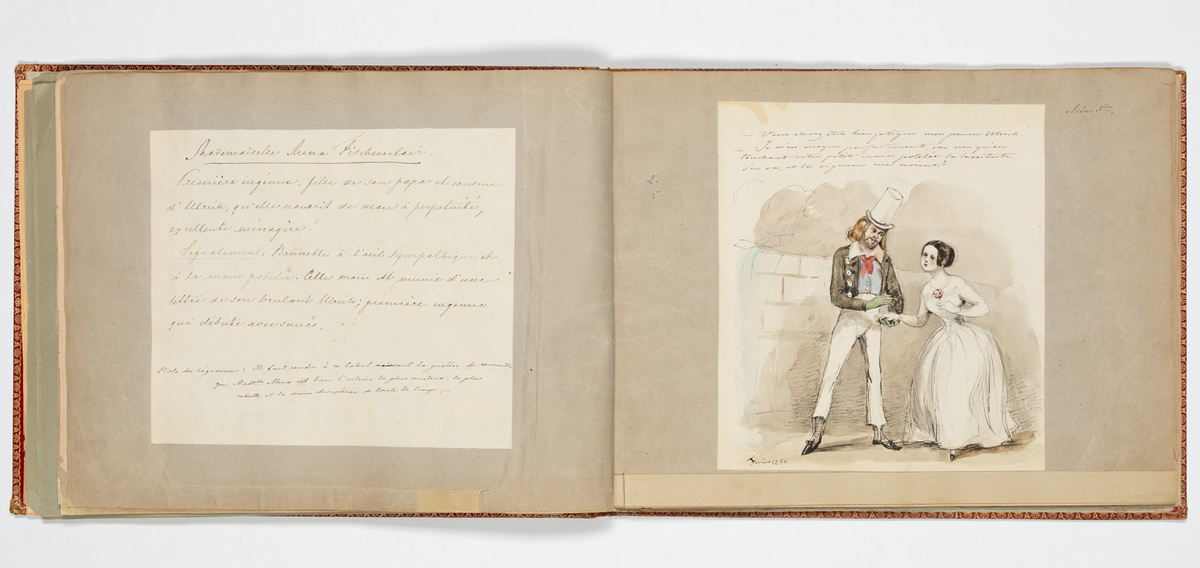 Mademoiselle Mina
Première ingénue, fille de son papa et cousine
d'Ulrich, qu'elle nourrit de veau à perpétuité,
excellente ménagère.
Signalement: Brunette à l'œil sympathique et
à la main potelée. Cette main est munie d'une
lettre de son brulant Ulrich; première ingénue
qui débute avec succès.
Note du régisseur: Il faut rendre à ce talent naissant la justice de reconnaitre
que Madelle Mina est bien l'actrice la plus la plus
et la moins de toute la troupe.
— Vous devez être bien fatigué mon pauvre Ulrich.
— Je n'en
touchant votre petite main potelée la lassitude
s'en va, et la vigueur me revient!
2.
février 1850